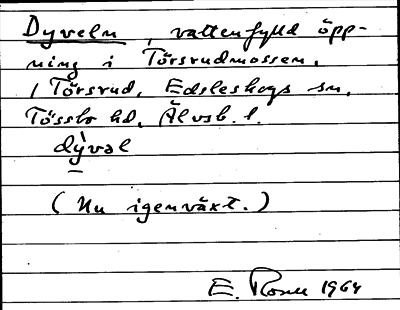 Dyveln, vattenfylld öpp-
ning i Törsrudmossen,
i Törsrud, Edsleskogs sn,
Tössbo hd, Älvsb. l.
dỳvəl
(Nu igenväxt.)
E. 1964